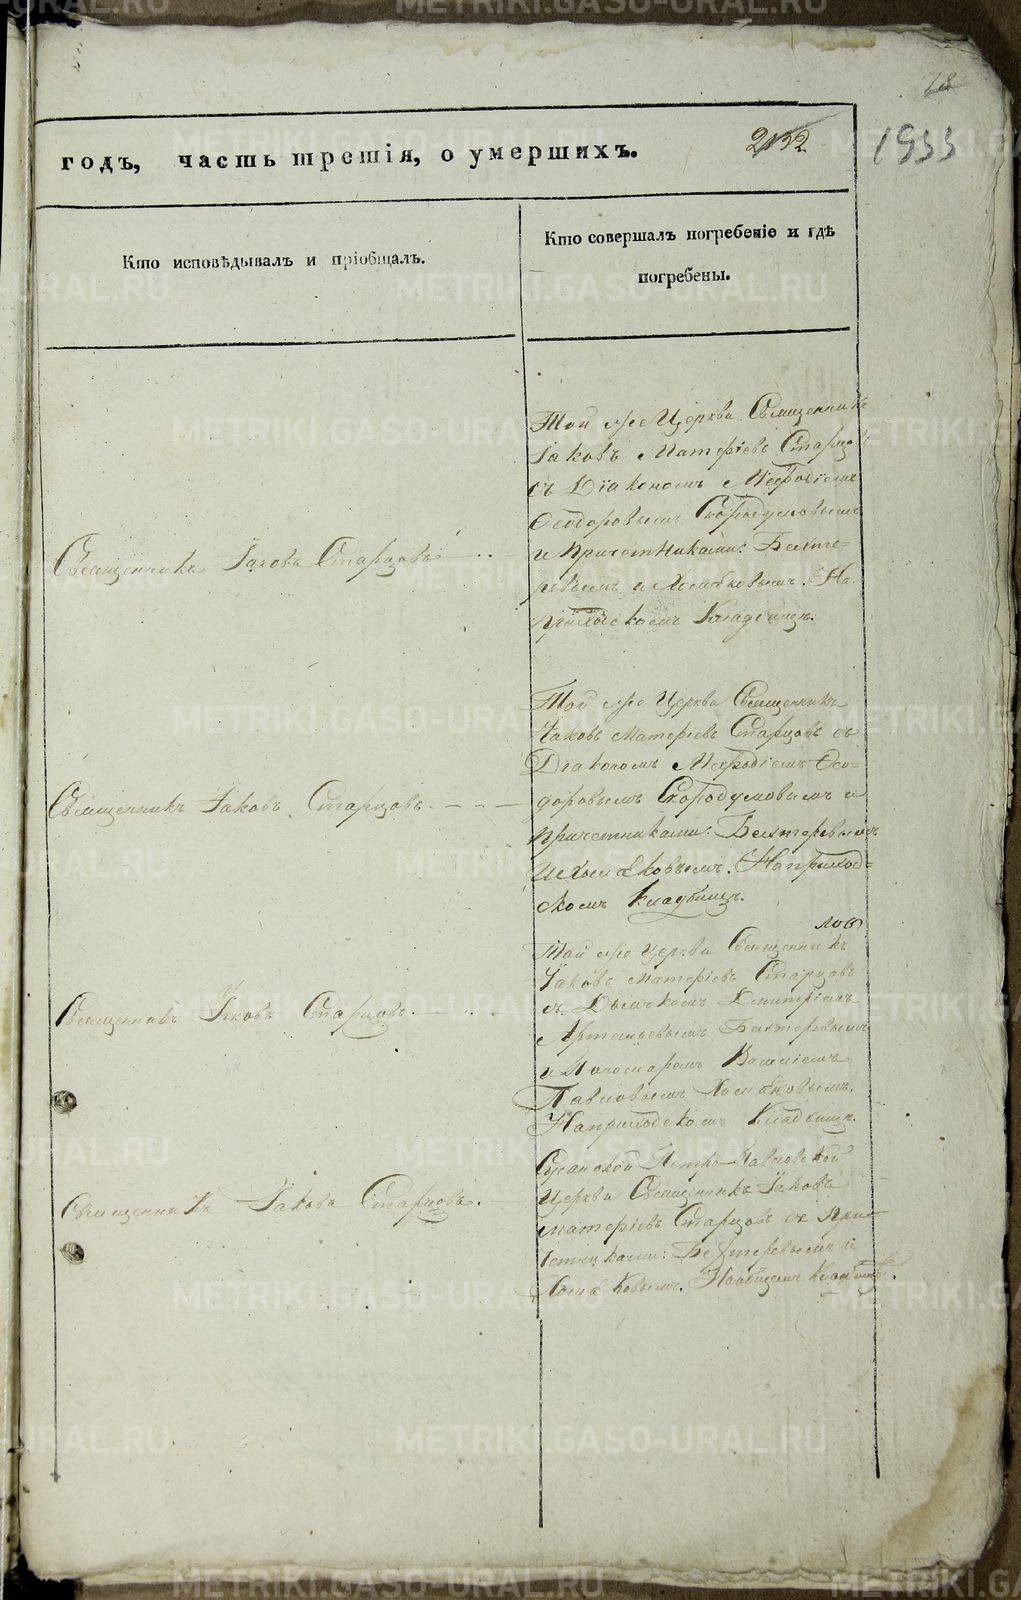 18
годъ, часть третія, о умершихъ.
2132
1933
Кто исповѣдывалъ и пріобщалъ.
Кто совершалъ погребеніе и гдѣ
погребены.
Той же Церкви Священникъ
Іаковъ Матфіевъ Старцовъ
Съ Діакономъ Мефодіемъ
Ѳеодоровымъ Скородумовымъ
и Причетниками: Бехте-
ревымъ и Хомяковымъ. На
приходскомъ Кладбищѣ.
Священникъ Іаковъ Старцовъ
Той же Церкви Священникъ
Іаковъ Матфіевъ Старцовъ съ
Діакономъ Мефодіемъ Ѳео-
доровымъ Скородумовымъ и
Причетниками: Бехтеревымъ
и Хомяковымъ. На приход-
скомъ Кладбищѣ.
Священникъ Іаковъ Старцовъ
Той же Церкви Священникъ
Іаковъ Матфіевъ Старцовъ
съ Дьячкомъ Димитріемъ
Артемьевымъ Бехтеревымъ
и Пономаремъ Василіемъ
Павловымъ Хомяковымъ.
На приходскомъ Кладбищѣ.
Священникъ Іаковъ Старцовъ
Сусанской Петро-Павловской
Церкви Священникъ Іаковъ
Матфіевъ Старцовъ съ При-
четниками: Бехтеревымъ и
Хомяковымъ. На общемъ Кладбищѣ.
Священникъ Іаковъ Старцовъ.
METRIKI.GASO-URAL.RU